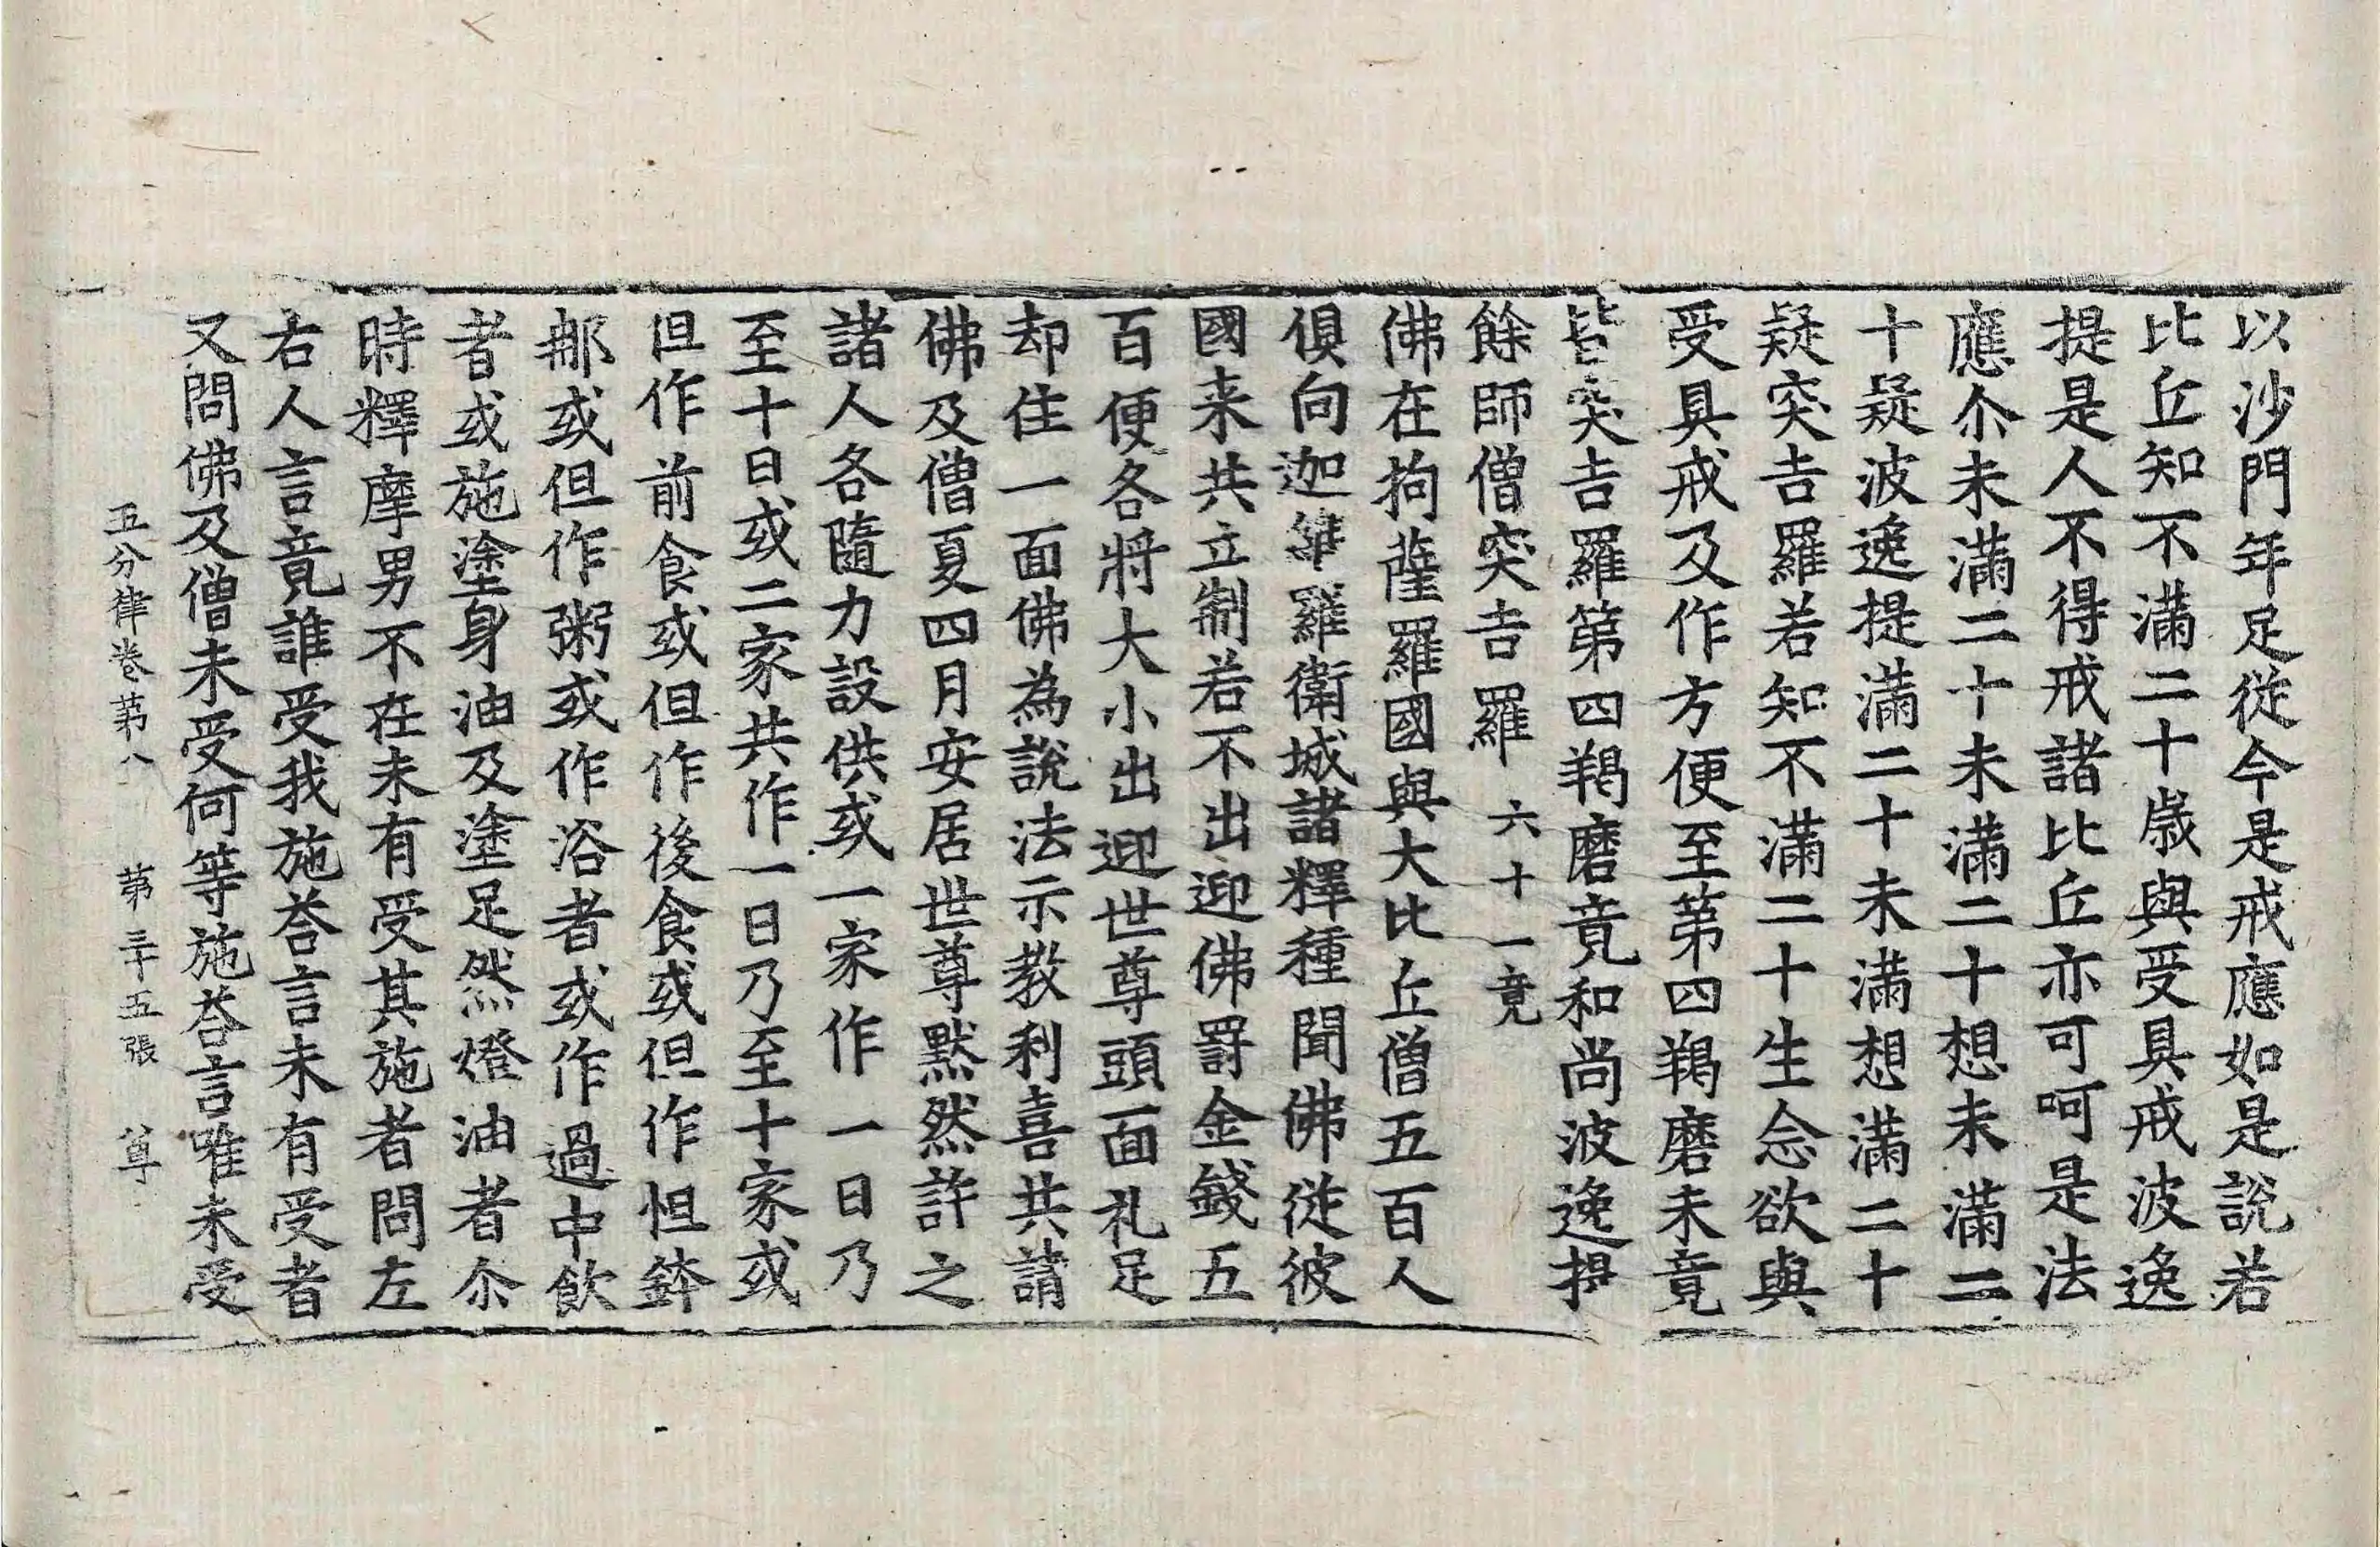 以沙門年足從今是戒應如是說若
比丘知不滿二十歲與受具戒波逸
提是人不得戒諸比丘亦可呵是法
應尒未滿二十未滿二十想未滿二
十疑波逸提滿二十未滿想滿二十
疑突吉羅若知不滿二十生念欲與
受具戒及作方便至第四羯磨未竟
皆突吉羅第四羯磨竟和尚波逸提
餘師僧突吉羅 六十一竟
佛在拘薩羅國與大比丘僧五百人
俱向迦維羅衛城諸釋種聞佛從彼
國来共立制若不出迎佛罰金錢五
百便各將大小出迎世尊頭面礼足
却住一面佛為說法示教利喜共請
佛及僧夏四月安居世尊默然許之
諸人各隨力設供或一家作一日乃
至十日或二家共作一日乃至十家或
但作前食或但作後食或但作怛鉢
那或但作粥或作浴者或作過中飲
者或施塗身油及塗足然燈油者尒
時釋摩男不在未有受其施者問左
右人言竟誰受我施荅言未有受者
又問佛及僧未受何等施荅言唯未受
五分律卷第八 第三十五張 尊